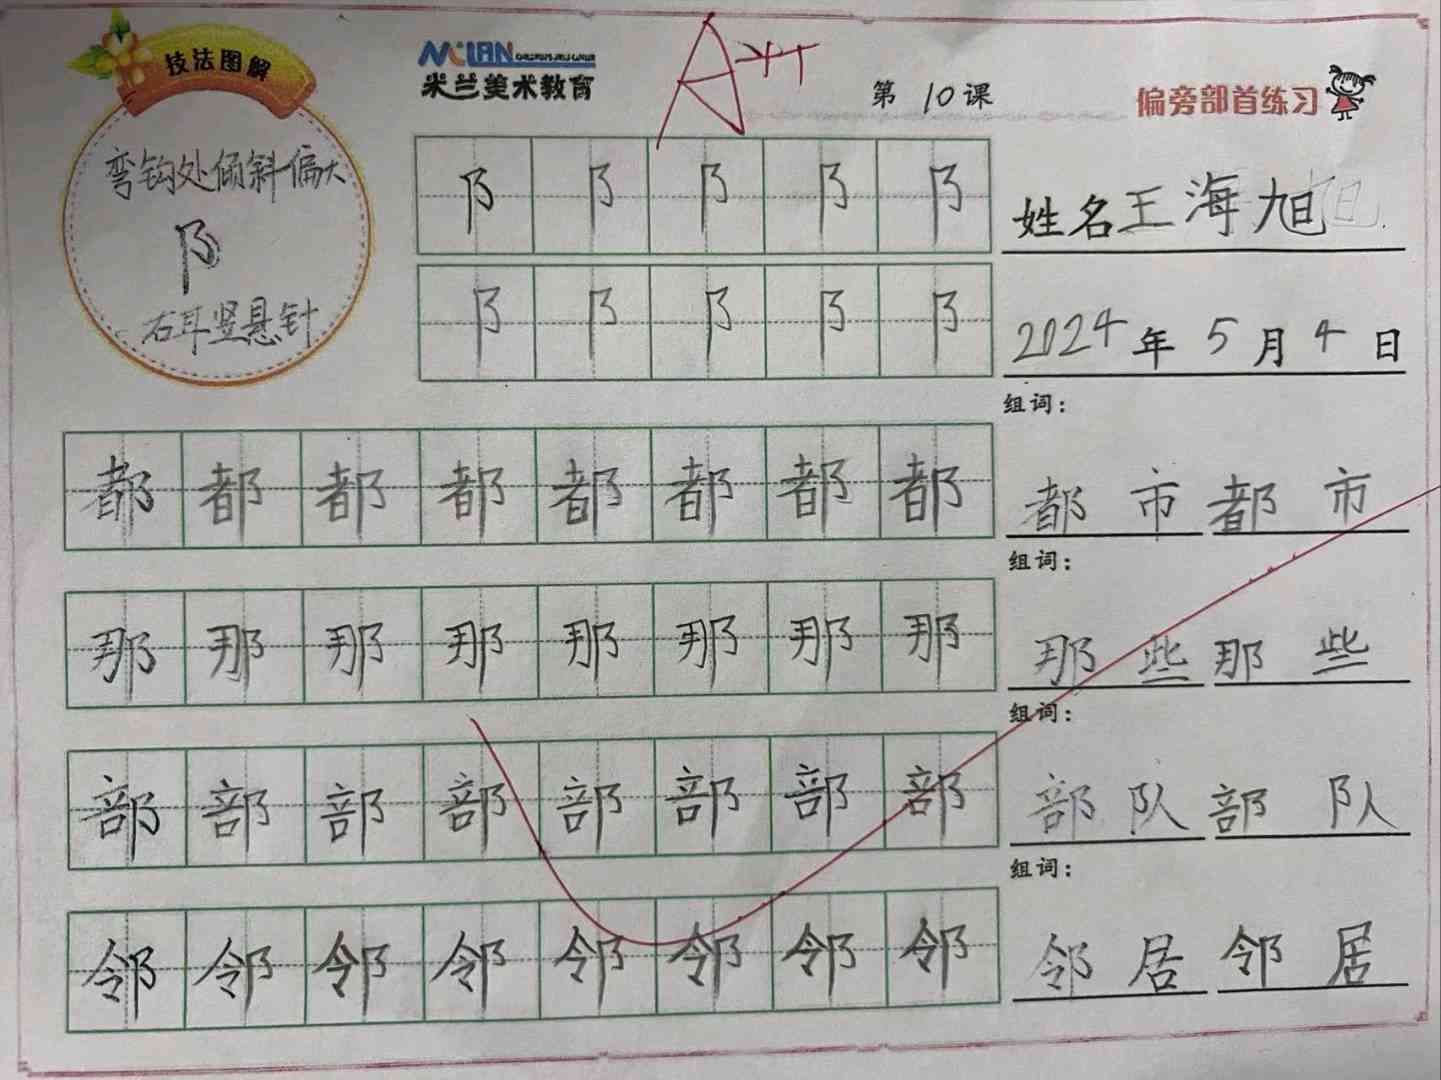 技法图解
弯钩处倾斜偏大
阝
右耳竖悬针
MILAN
米兰美术教育
A++
第 10 课
偏旁部首练习
阝 阝 阝 阝 阝
姓名 王海旭
阝 阝 阝 阝 阝
2024 年 5 月 4 日
组词：
都 都 都 都 都 都 都 都
都市 都市
组词：
那 那 那 那 那 那 那 那
那些 那些
组词：
部 部 部 部 部 部 部 部
部队 部队
组词：
邻 邻 邻 邻 邻 邻 邻 邻
邻居 邻居